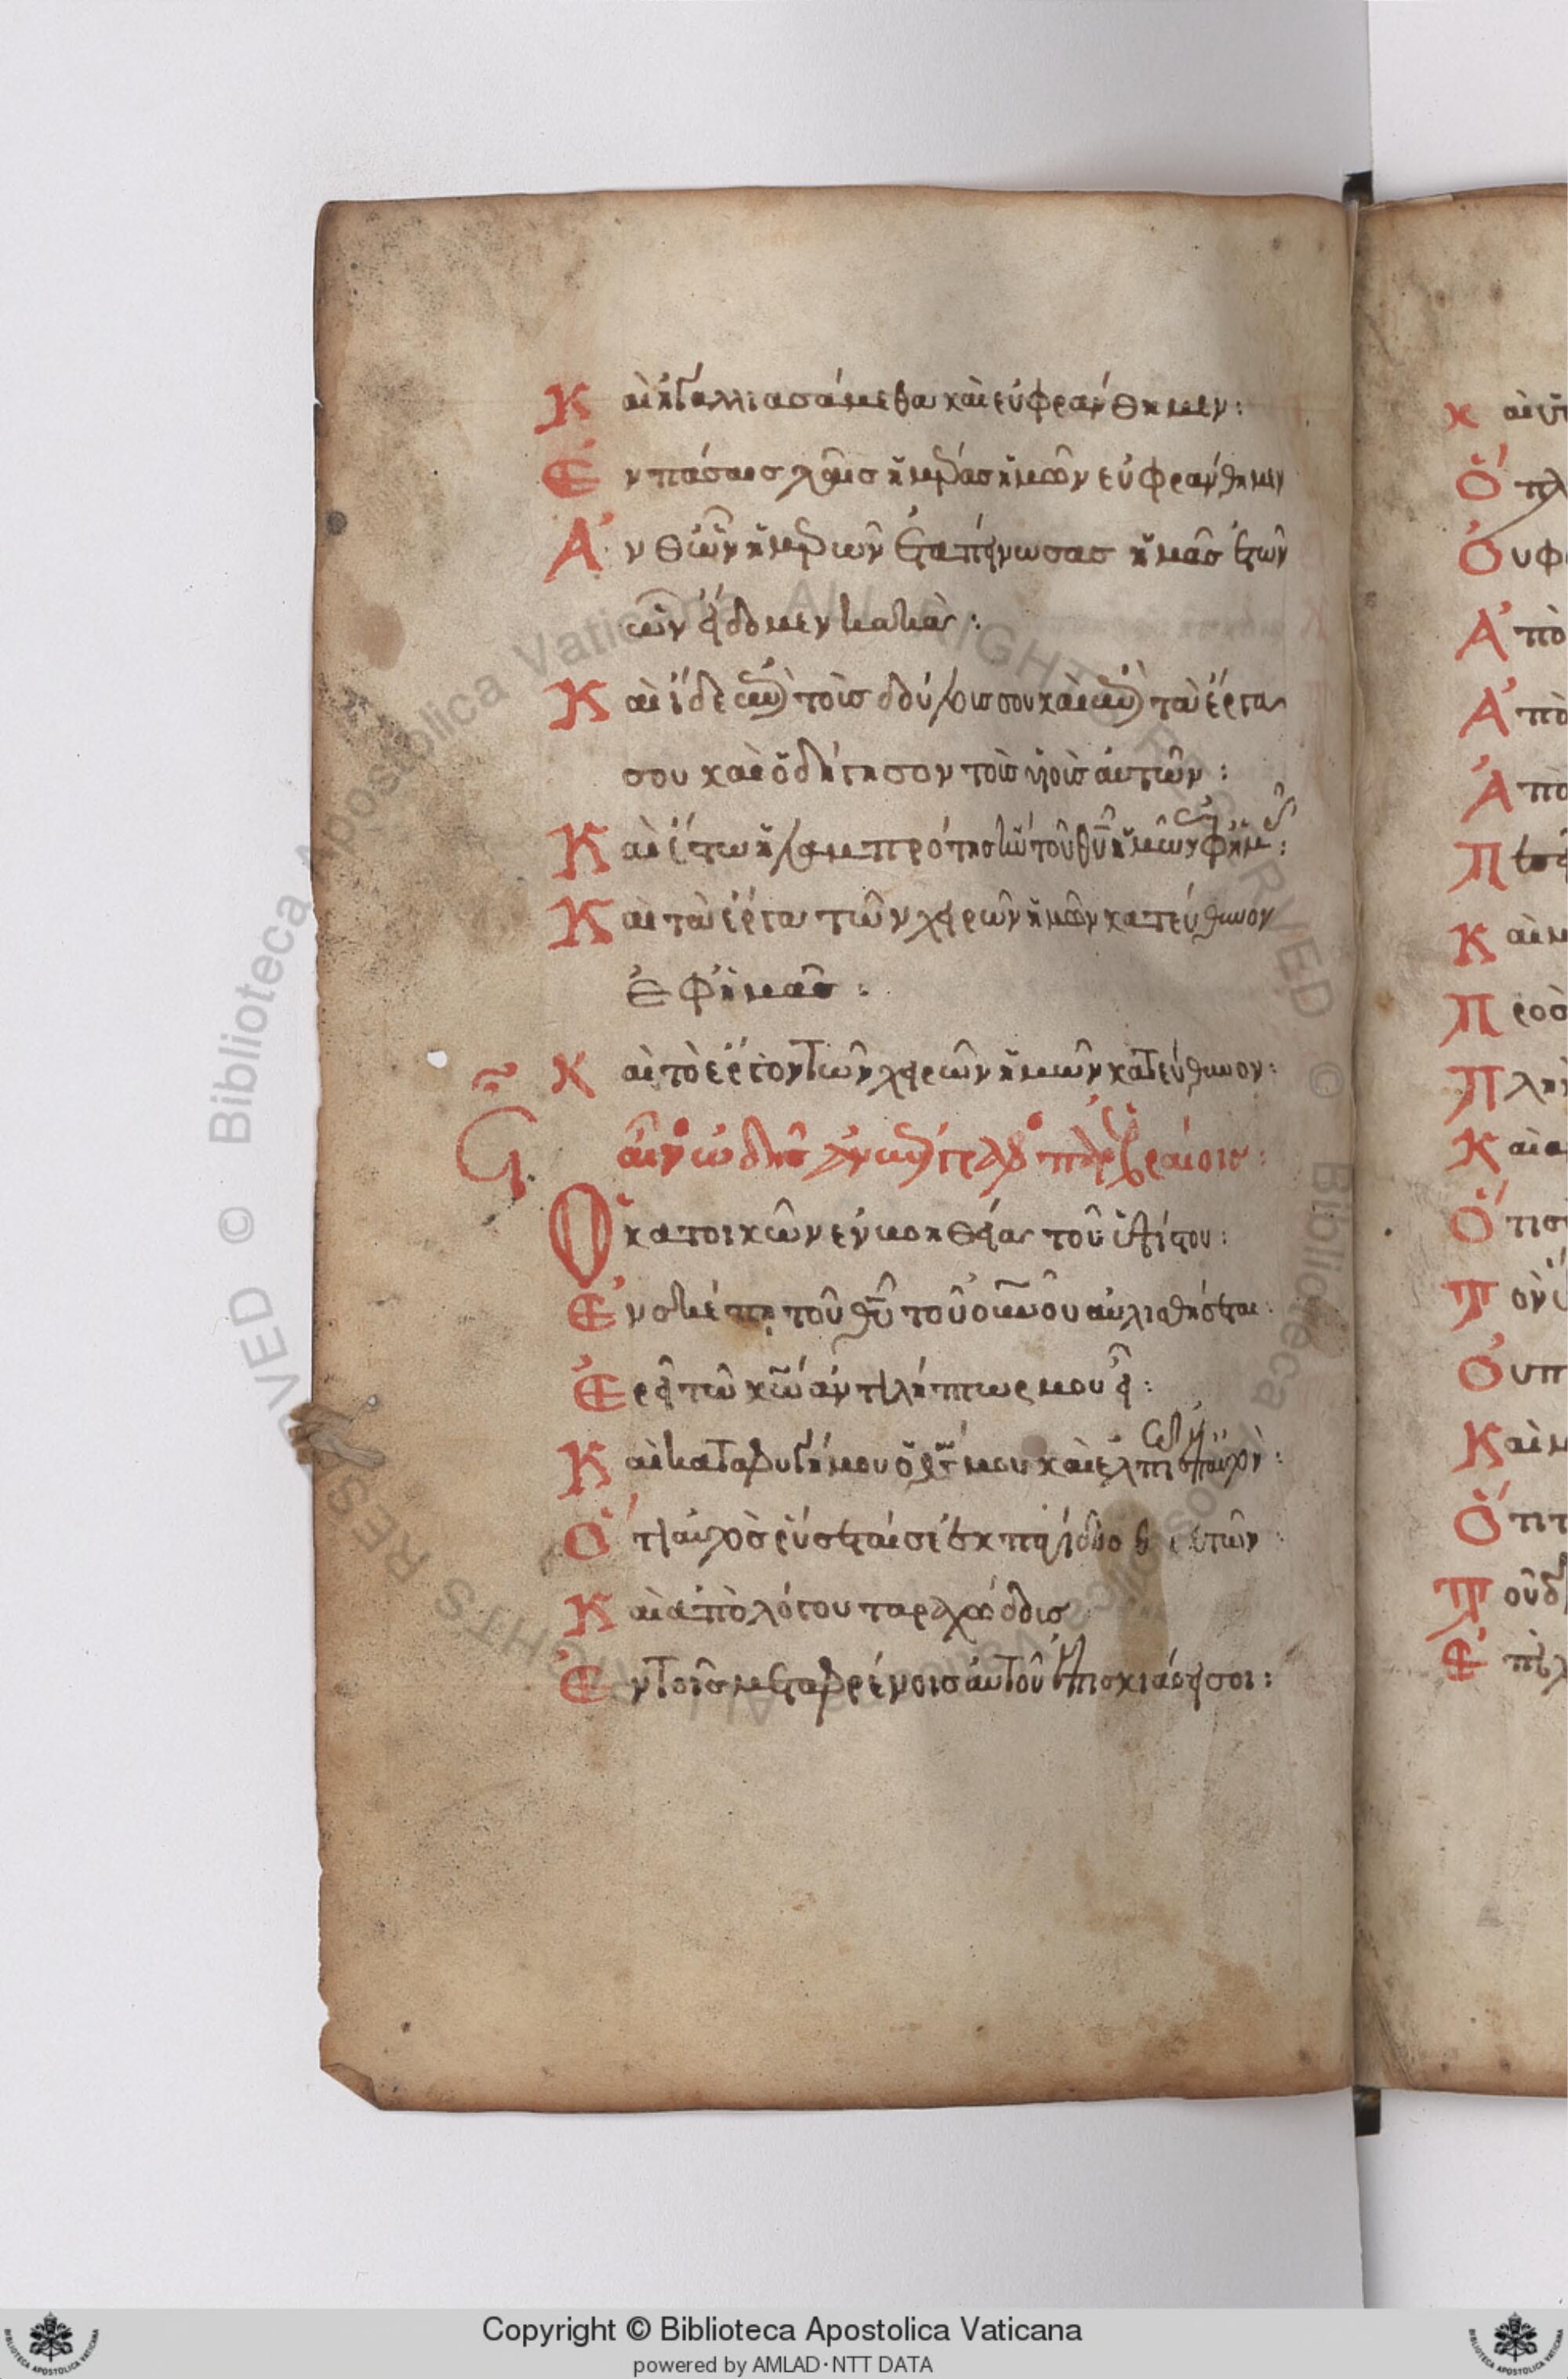 Καὶ ἠγαλλιασάμεθα καὶ εὐφράνθημεν:
Ἐν πάσαις ταῖς ἡμέραις ἡμῶν εὐφράνθημεν
Ἀνθ ὧν ἡμερῶν ἐταπείνωσας ἡμᾶς ἐτῶν
ὧν εἴδομεν κακά:
Καὶ ἴδε ἐπὶ τοὺς δούλους σου καὶ ἐπὶ τὰ ἔργα
σου καὶ ὁδήγησον τοὺς υἱοὺς αὐτῶν:
Καὶ ἔστω ἡ λαμπρότης κυ τοῦ θυ ἡμῶν ἐφ ἡμᾶς:
Καὶ τὰ ἔργα τῶν χειρῶν ἡμῶν κατεύθυνον
ἐφ ἡμᾶς:
Καὶ τὸ ἔργον τῶν χειρῶν ἡμῶν κατεύθυνον:
αἶνος ὠδῆς ἀνεπίγραφος παρ ἑβραίοις:
Ὁ κατοικῶν ἐν βοηθείᾳ τοῦ ὑψίστου:
Ἐν σκέπῃ τοῦ θυ τοῦ οὐνοῦ αὐλισθήσεται:
Ἐρεῖ τῷ κω ἀντιλήπτωρ μου εἶ:
Καὶ καταφυγή μου ὁ θς μου καὶ ἐλπιῶ ἐπ αὐτόν:
Ὅτι αὐτὸς ῥύσεταί σε ἐκ παγίδος θηρευτῶν:
Καὶ ἀπὸ λόγου ταραχώδους
Ἐν τοῖς μεταφρένοις αὐτοῦ ἐπισκιάσει σοι:
Copyright © Biblioteca Apostolica Vaticana
powered by AMLAD·NTT DATA